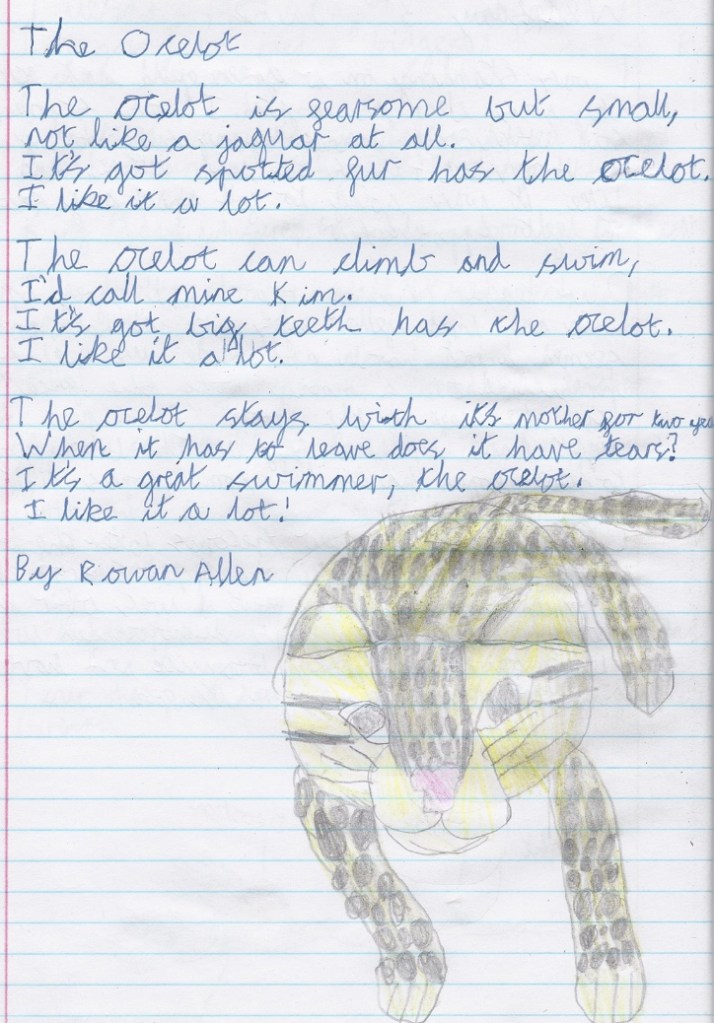 The Ocelot
The ocelot is fearsome but small,
not like a jaguar at all.
It's got spotted fur has the ocelot.
I like it a lot.
The ocelot can climb and swim,
I'd call mine Kim.
It's got big teeth has the ocelot.
I like it a lot.
The ocelot stays with it's mother for two
When it has to leave does it have tears?
It's a great swimmer, the ocelot.
I like it a lot!
By Rowan Allen